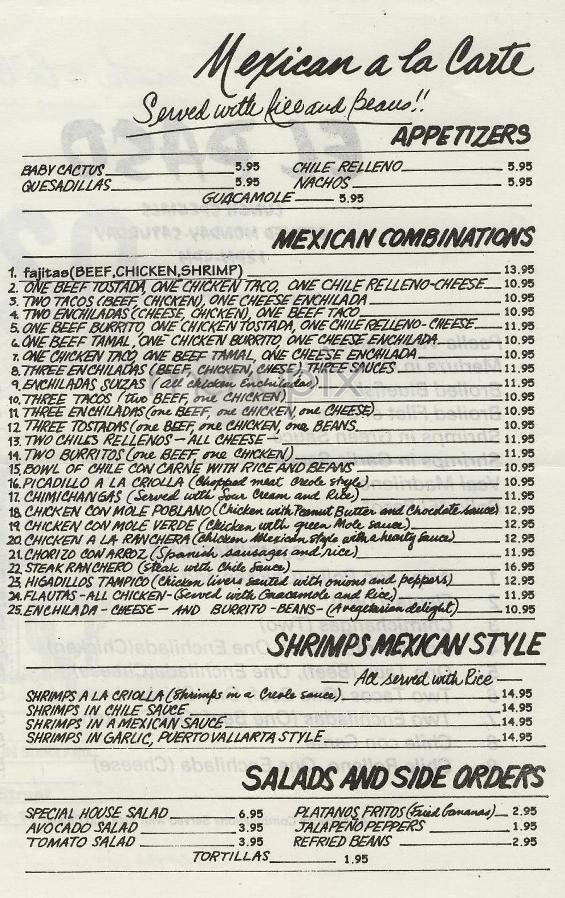 Mexican a la Carte
Served with Rice and Beans!!
APPETIZERS
BABY CACTUS 5.95 CHILE RELLENO 5.95
QUESADILLAS 5.95 NACHOS 5.95
GUACAMOLE 5.95
MEXICAN COMBINATIONS
1. fajitas (BEEF, CHICKEN, SHRIMP) 13.95
2. ONE BEEF TOSTADA, ONE CHICKEN TACO, ONE CHILE RELLENO-CHEESE 10.95
3. TWO TACOS (BEEF, CHICKEN), ONE CHEESE ENCHILADA 10.95
4. TWO ENCHILADAS (CHEESE, CHICKEN), ONE BEEF TACO 10.95
5. ONE BEEF BURRITO, ONE CHICKEN TOSTADA, ONE CHILE RELLENO-CHEESE 11.95
6. ONE BEEF TAMAL, ONE CHICKEN BURRITO, ONE CHEESE ENCHILADA 10.95
7. ONE CHICKEN TACO, ONE BEEF TAMAL, ONE CHEESE ENCHILADA 10.95
8. THREE ENCHILADAS (BEEF, CHICKEN, CHESE) THREE SAUCES 11.95
9. ENCHILADAS SUIZAS (all chicken Enchiladas) 11.95
10. THREE TACOS (two BEEF, one CHICKEN) 10.95
11. THREE ENCHILADAS (one BEEF, one CHICKEN, one CHEESE) 10.95
12. THREE TOSTADAS (one BEEF, one CHICKEN, one BEANS 10.95
13. TWO CHILES RELLENOS - ALL CHEESE 11.95
14. TWO BURRITOS (one BEEF, one CHICKEN) 11.95
15. BOWL OF CHILE CON CARNE WITH RICE AND BEANS 10.95
16. PICADILLO A LA CRIOLLA (Chopped meat Creole style) 10.95
17. CHIMICHANGAS (Served with Sour Cream and Rice) 11.95
18. CHICKEN CON MOLE POBLANO (Chicken with Peanut Butter and Chocolate sauce) 12.95
19. CHICKEN CON MOLE VERDE (Chicken with green Mole sauce) 12.95
20. CHICKEN A LA RANCHERA (Chicken Mexican style with a hearty Sauce) 12.95
21. CHORIZO CON ARROZ (Spanish sausages and rice) 11.95
22. STEAK RANCHERO (Steak with Chile Sauce) 16.95
23. HIGADILLOS TAMPICO (Chicken livers sauted with onions and peppers) 12.95
24. FLAUTAS - ALL CHICKEN - (Served with Guacamole and Rice) 11.95
25. ENCHILADA - CHEESE - AND BURRITO - BEANS - (A vegetarian delight) 10.95
SHRIMPS MEXICAN STYLE
All served with Rice
SHRIMPS A LA CRIOLLA (Shrimps in a Creole sauce) 14.95
SHRIMPS IN CHILE SAUCE 14.95
SHRIMPS IN A MEXICAN SAUCE 14.95
SHRIMPS IN GARLIC, PUERTO VALLARTA STYLE 14.95
SALADS AND SIDE ORDERS
SPECIAL HOUSE SALAD 6.95 PLATANOS FRITOS (Fried Bananas) 2.95
AVOCADO SALAD 3.95 JALAPEÑO PEPPERS 1.95
TOMATO SALAD 3.95 REFRIED BEANS 2.95
TORTILLAS 1.95